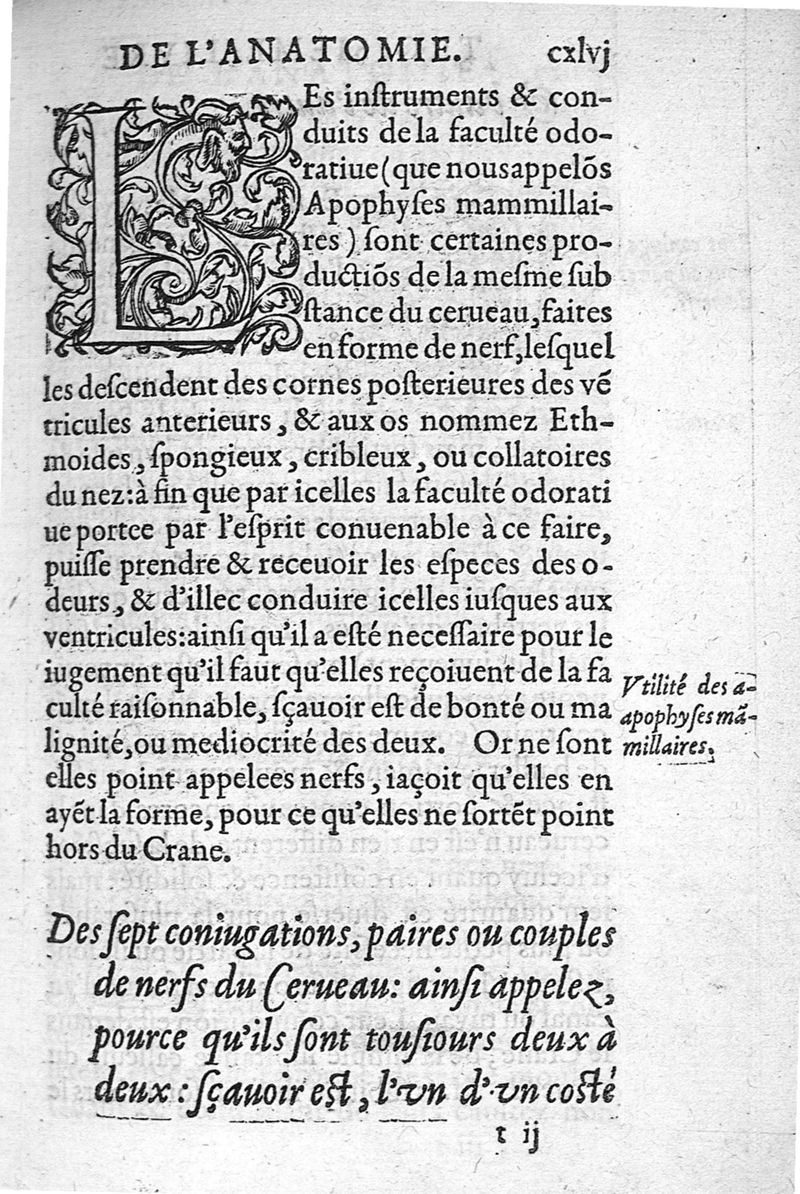 DE L'ANATOMIE. cxlvj
LEs inſtruments & con-
duits de la faculté odo-
ratiue (que nous appelõs
Apophyſes mammillai-
res) ſont certaines pro-
ductiõs de la meſme ſub
ſtance du cerueau, faites
en forme de nerf, leſquel
les deſcendent des cornes poſterieures des vẽ
tricules anterieurs, & aux os nommez Eth-
moides, ſpongieux, cribleux, ou collatoires
du nez: à fin que par icelles la faculté odorati
ue portee par l'eſprit conuenable à ce faire,
puiſſe prendre & receuoir les eſpeces des o-
deurs, & d'illec conduire icelles iuſques aux
ventricules: ainſi qu'il a eſté neceſſaire pour le
iugement qu'il faut qu'elles reçoiuent de la fa
culté raiſonnable, ſçauoir eſt de bonté ou ma
lignité, ou mediocrité des deux. Or ne ſont
elles point appelees nerfs, iaçoit qu'elles en
ayẽt la forme, pour ce qu'elles ne ſortẽt point
hors du Crane.
Vtilité des a-
apophyſes mã-
millaires.
Des ſept coniugations, paires ou couples
de nerfs du Cerueau: ainſi appelez,
pource qu'ils ſont touſiours deux à
deux: ſçauoir eſt, l'vn d'vn coſté
t ij